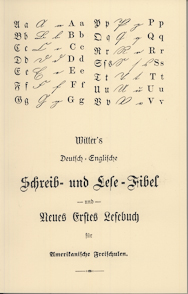 A a A a P p P p
B b B b Q q Q q
C c C c R r R r
D d D d S s S s
E e E e T t T t
F f F f U u U u
V v V v
Witter's
Deutsch-Englische
Schreib- und Lese-Fibel
und
Neues Erstes Lesebuch
für
Amerikanische Freischulen.